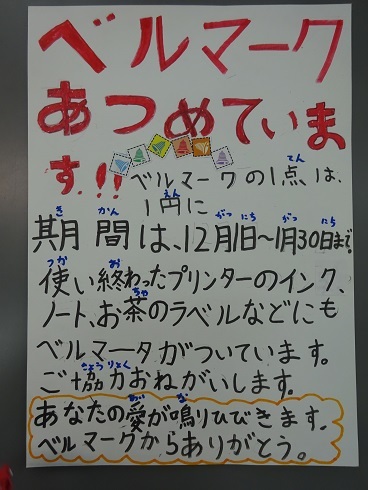 ベルマーク
あつめていま
す!!
ベルマークの1点は、
1円に
期間は、12月1日〜1月30日まで。
使い終わったプリンターのインク、
ノート、お茶のラベルなどにも
ベルマークがついています。
ご協力おねがいします。
あなたの愛が鳴りひびきます。
ベルマークからありがとう。